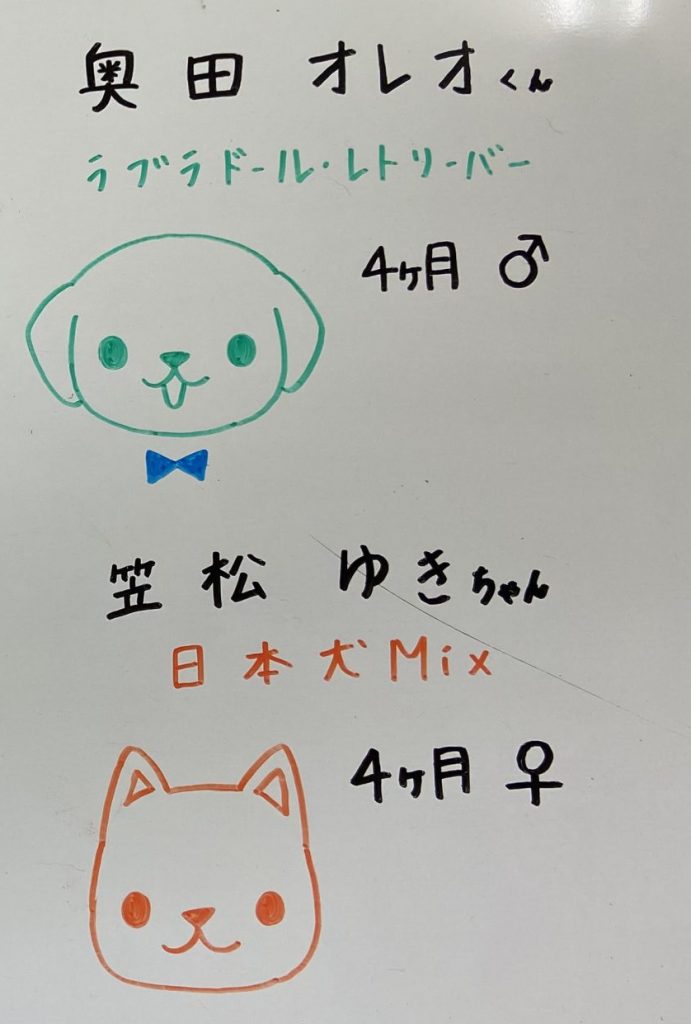 奥田 オレオくん
ラブラドール・レトリーバー
4ヶ月 ♂
笠松 ゆきちゃん
日本犬Mix
4ヶ月 ♀